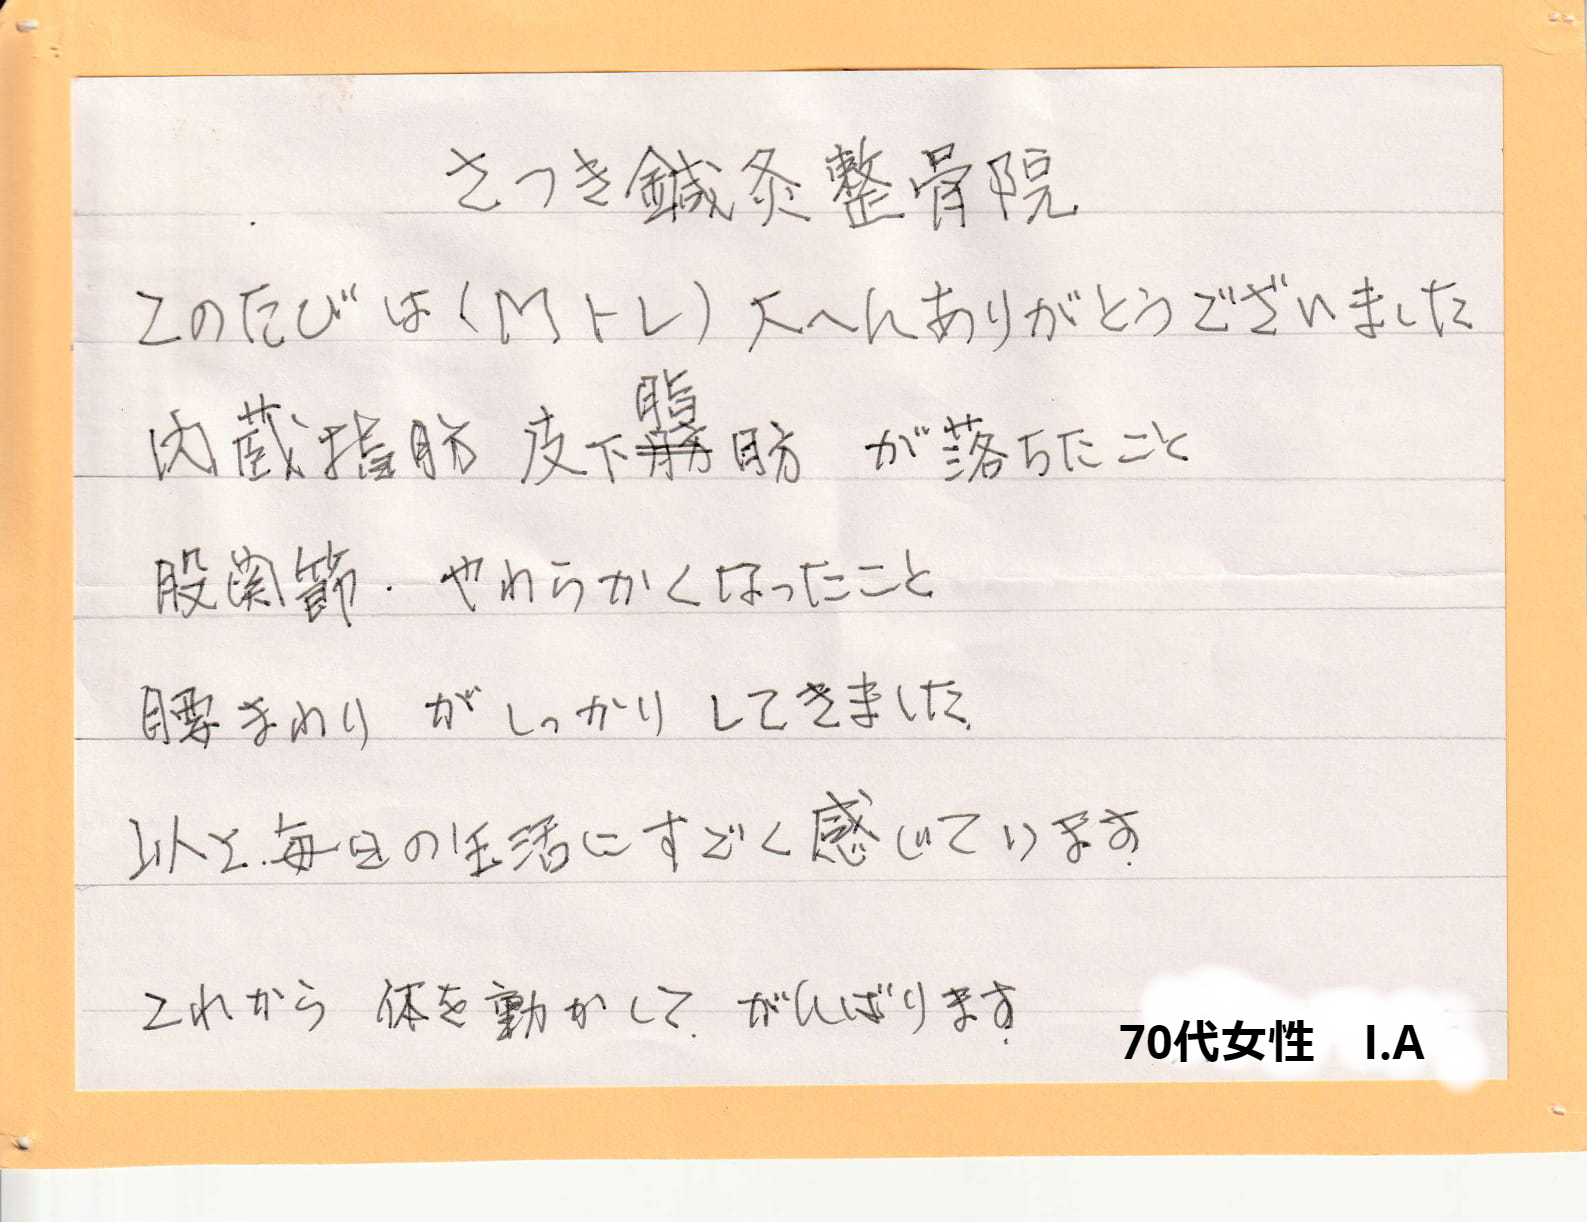 さつき鍼灸整骨院
このたびは(Mトレ)大へんありがとうございました
内蔵指肪 皮下脂肪 が落ちたこと
股関節. やわらかくなったこと
腰まわり がしっかり してきました.
以上.毎日の生活にすごく感じています.
これから 体を動かして. がんばります.
70代女性 I.A